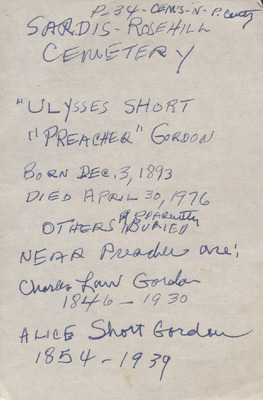 P-34-CEMS-N-P. County
SARDIS-ROSEHILL
CEMETERY
"ULYSSES SHORT
"PREACHER" GORDON
BORN DEC. 3, 1893
DIED APRIL 30, 1976
APPARENTLY
OTHERS BURIED
NEAR Preacher are:
Charles Law Gordon
1846 - 1930
ALICE Short Gordon
1854 - 1939